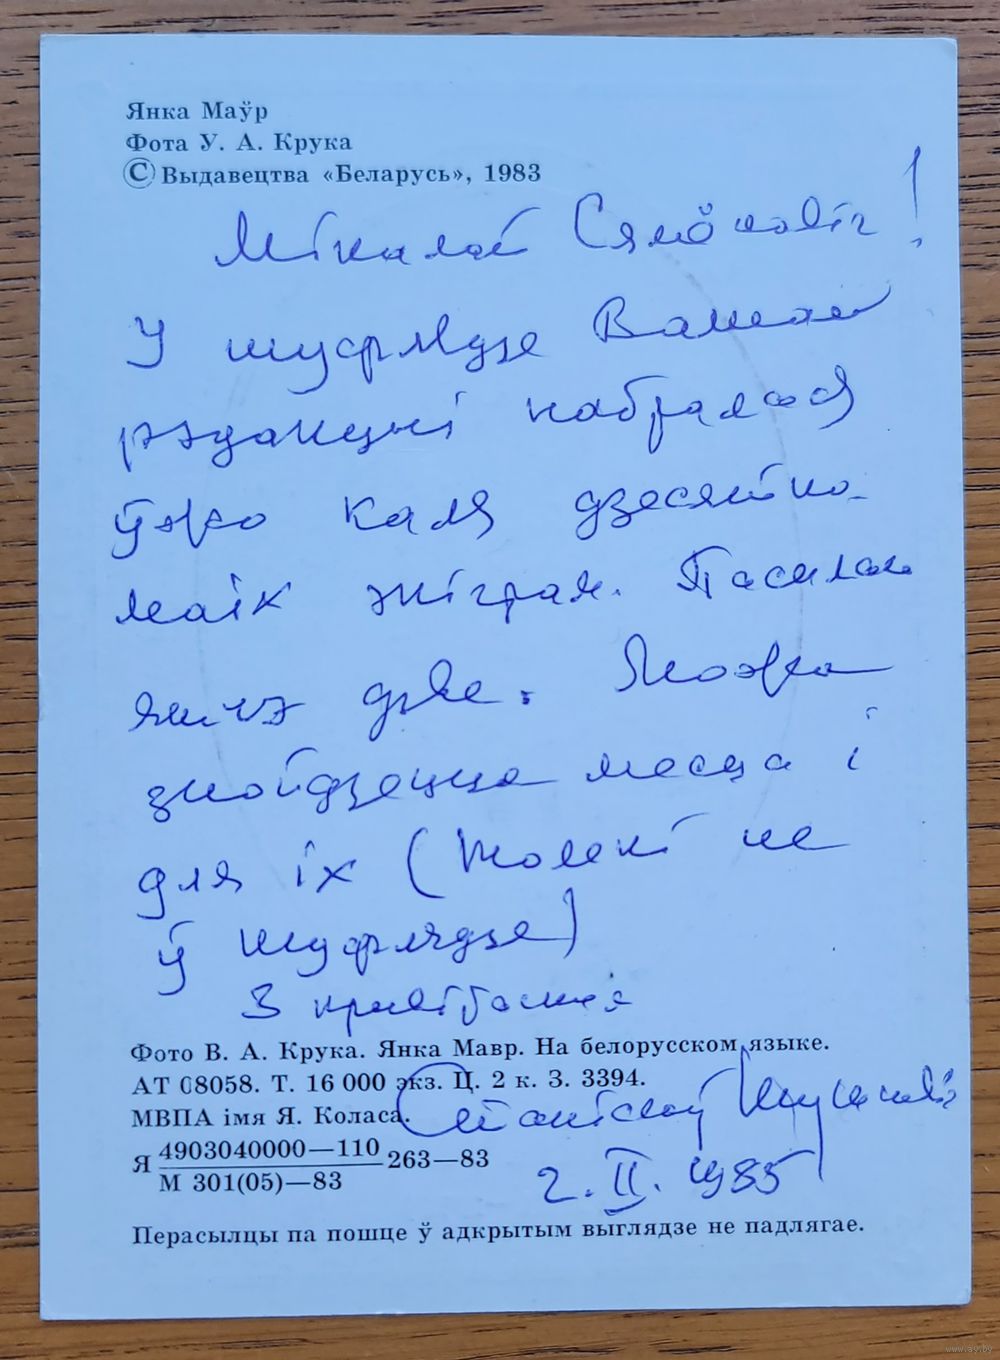 Янка Маўр
Фота У. А. Крука
© Выдавецтва «Беларусь», 1983
Мікалай Сямёнавіч!
У шуфлядзе Вашай
рэдакцыі набралася
ўжо каля дзесятка
маіх эпіграм. Пасылаю
яшчэ дзве. Можа
знойдзецца месца і
для іх (толькі не
ў шуфлядзе)
З прывітаннем
Фото В. А. Крука. Янка Мавр. На белорусском языке.
АТ 08058. Т. 16 000 экз. Ц. 2 к. З. 3394.
МВПА імя Я. Коласа.
Я 4903040000—110 263—83
М 301(05)—83
Станіслаў Шушкевіч
2.II.1985
Перасылцы па пошце ў адкрытым выглядзе не падлягае.
www.ay.by